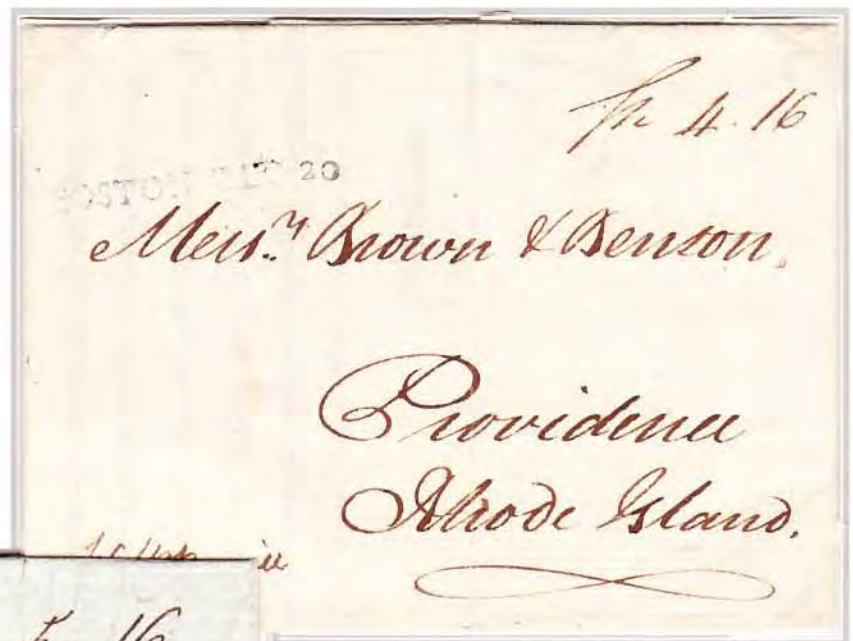 4. 16
BOSTON 20
Mess.rs Brown & Benson,
Providence
Rhode Island.
16